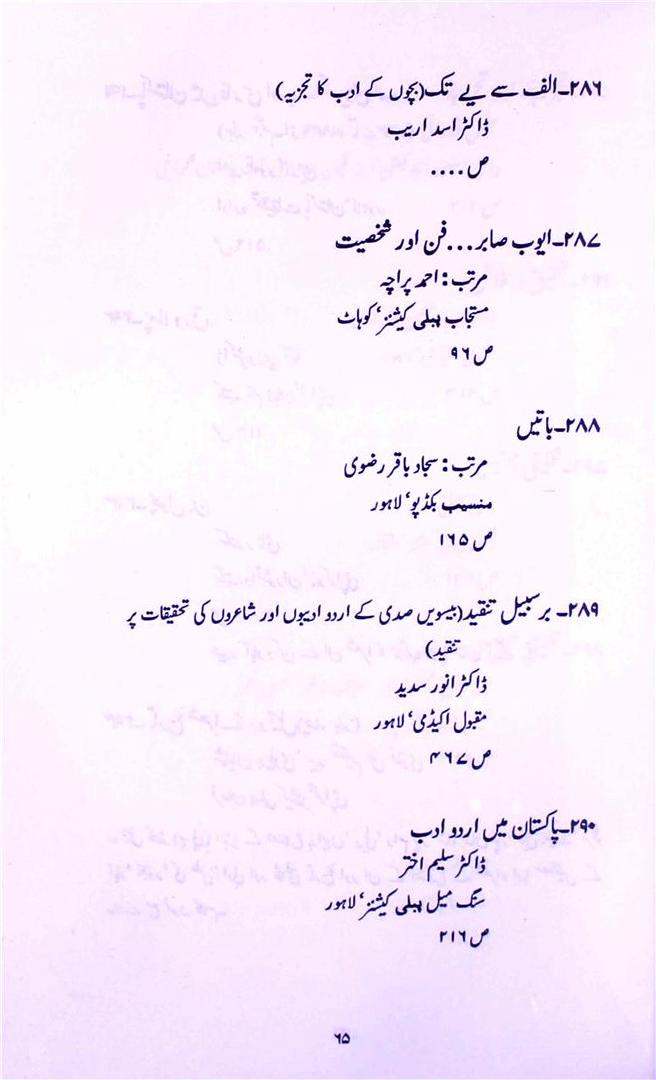 ۲۸۶۔الف سے یے تک(بچوں کے ادب کا تجزیہ)
ڈاکٹر اسد اریب
ص ....
۲۸۷۔ایوب صابر...فن اور شخصیت
مرتب: احمد پراچہ
مستجاب پبلی کیشنز‘ کوہاٹ
ص ۹۶
۲۸۸۔باتیں
مرتب: سجاد باقر رضوی
منسیب بکڈپو‘ لاہور
ص ۱۶۵
۲۸۹۔ بر سبیل تنقید(بیسویں صدی کے اردو ادیبوں اور شاعروں کی تحقیقات پر
تنقید)
ڈاکٹر انور سدید
مقبول اکیڈمی‘ لاہور
ص ۴۶۷
۲۹۰۔پاکستان میں اردو ادب
ڈاکٹر سلیم اختر
سنگ میل پبلی کیشنز‘ لاہور
ص ۲۱۶
۶۵